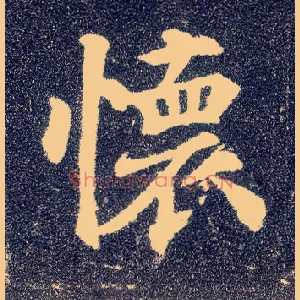 懷
Shufawang.CN